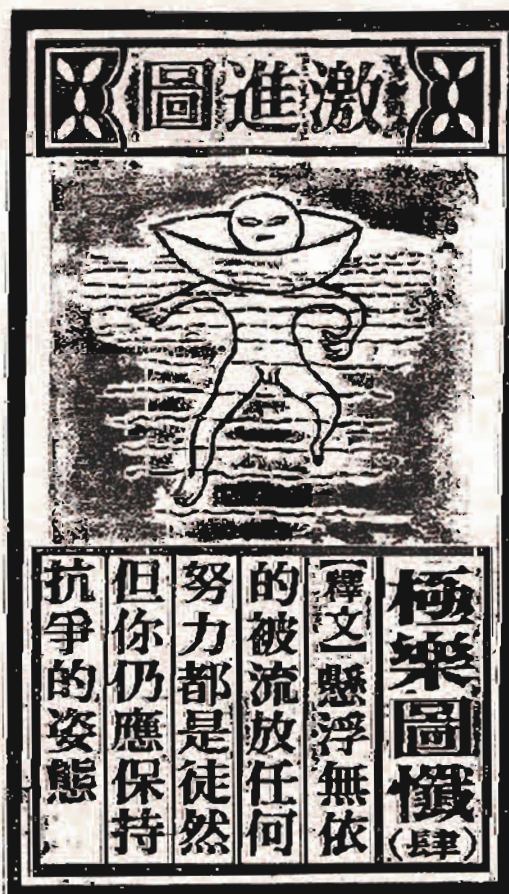 激進圖
極樂圖懺(肆)
【釋文】懸浮無依
的被流放任何
努力都是徒然
但你仍應保持
抗爭的姿態